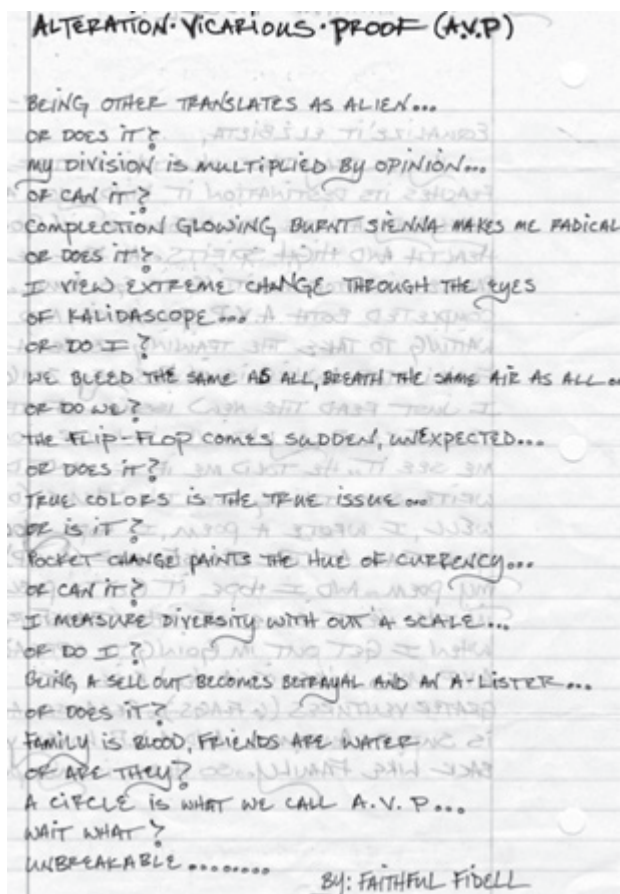 ALTERATION·VICARIOUS·PROOF (A.V.P)
BEING OTHER TRANSLATES AS ALIEN...
OR DOES IT?
MY DIVISION IS MULTIPLIED BY OPINION...
OR CAN IT?
COMPLECTION GLOWING BURNT SIENNA MAKES ME RADICAL
OR DOES IT?
I VIEW EXTREME CHANGE THROUGH THE EYES
OF KALIDASCOPE...
OR DO I?
WE BLEED THE SAME AS ALL, BREATH THE SAME AIR AS ALL..
OR DO WE?
THE FLIP-FLOP COMES SUDDEN, UNEXPECTED...
OR DOES IT?
TRUE COLORS IS THE TRUE ISSUE...
OR IS IT?
POCKET CHANGE PAINTS THE HUE OF CURRENCY...
OR CAN IT?
I MEASURE DIVERSITY WITH OUT A SCALE...
OR DO I?
BEING A SELL OUT BECOMES BETRAYAL AND AN A-LISTER...
OR DOES IT?
FAMILY IS BLOOD, FRIENDS ARE WATER
OR ARE THEY?
A CIRCLE IS WHAT WE CALL A.V.P...
WAIT WHAT?
UNBREAKABLE.........
BY: FAITHFUL FIDELL